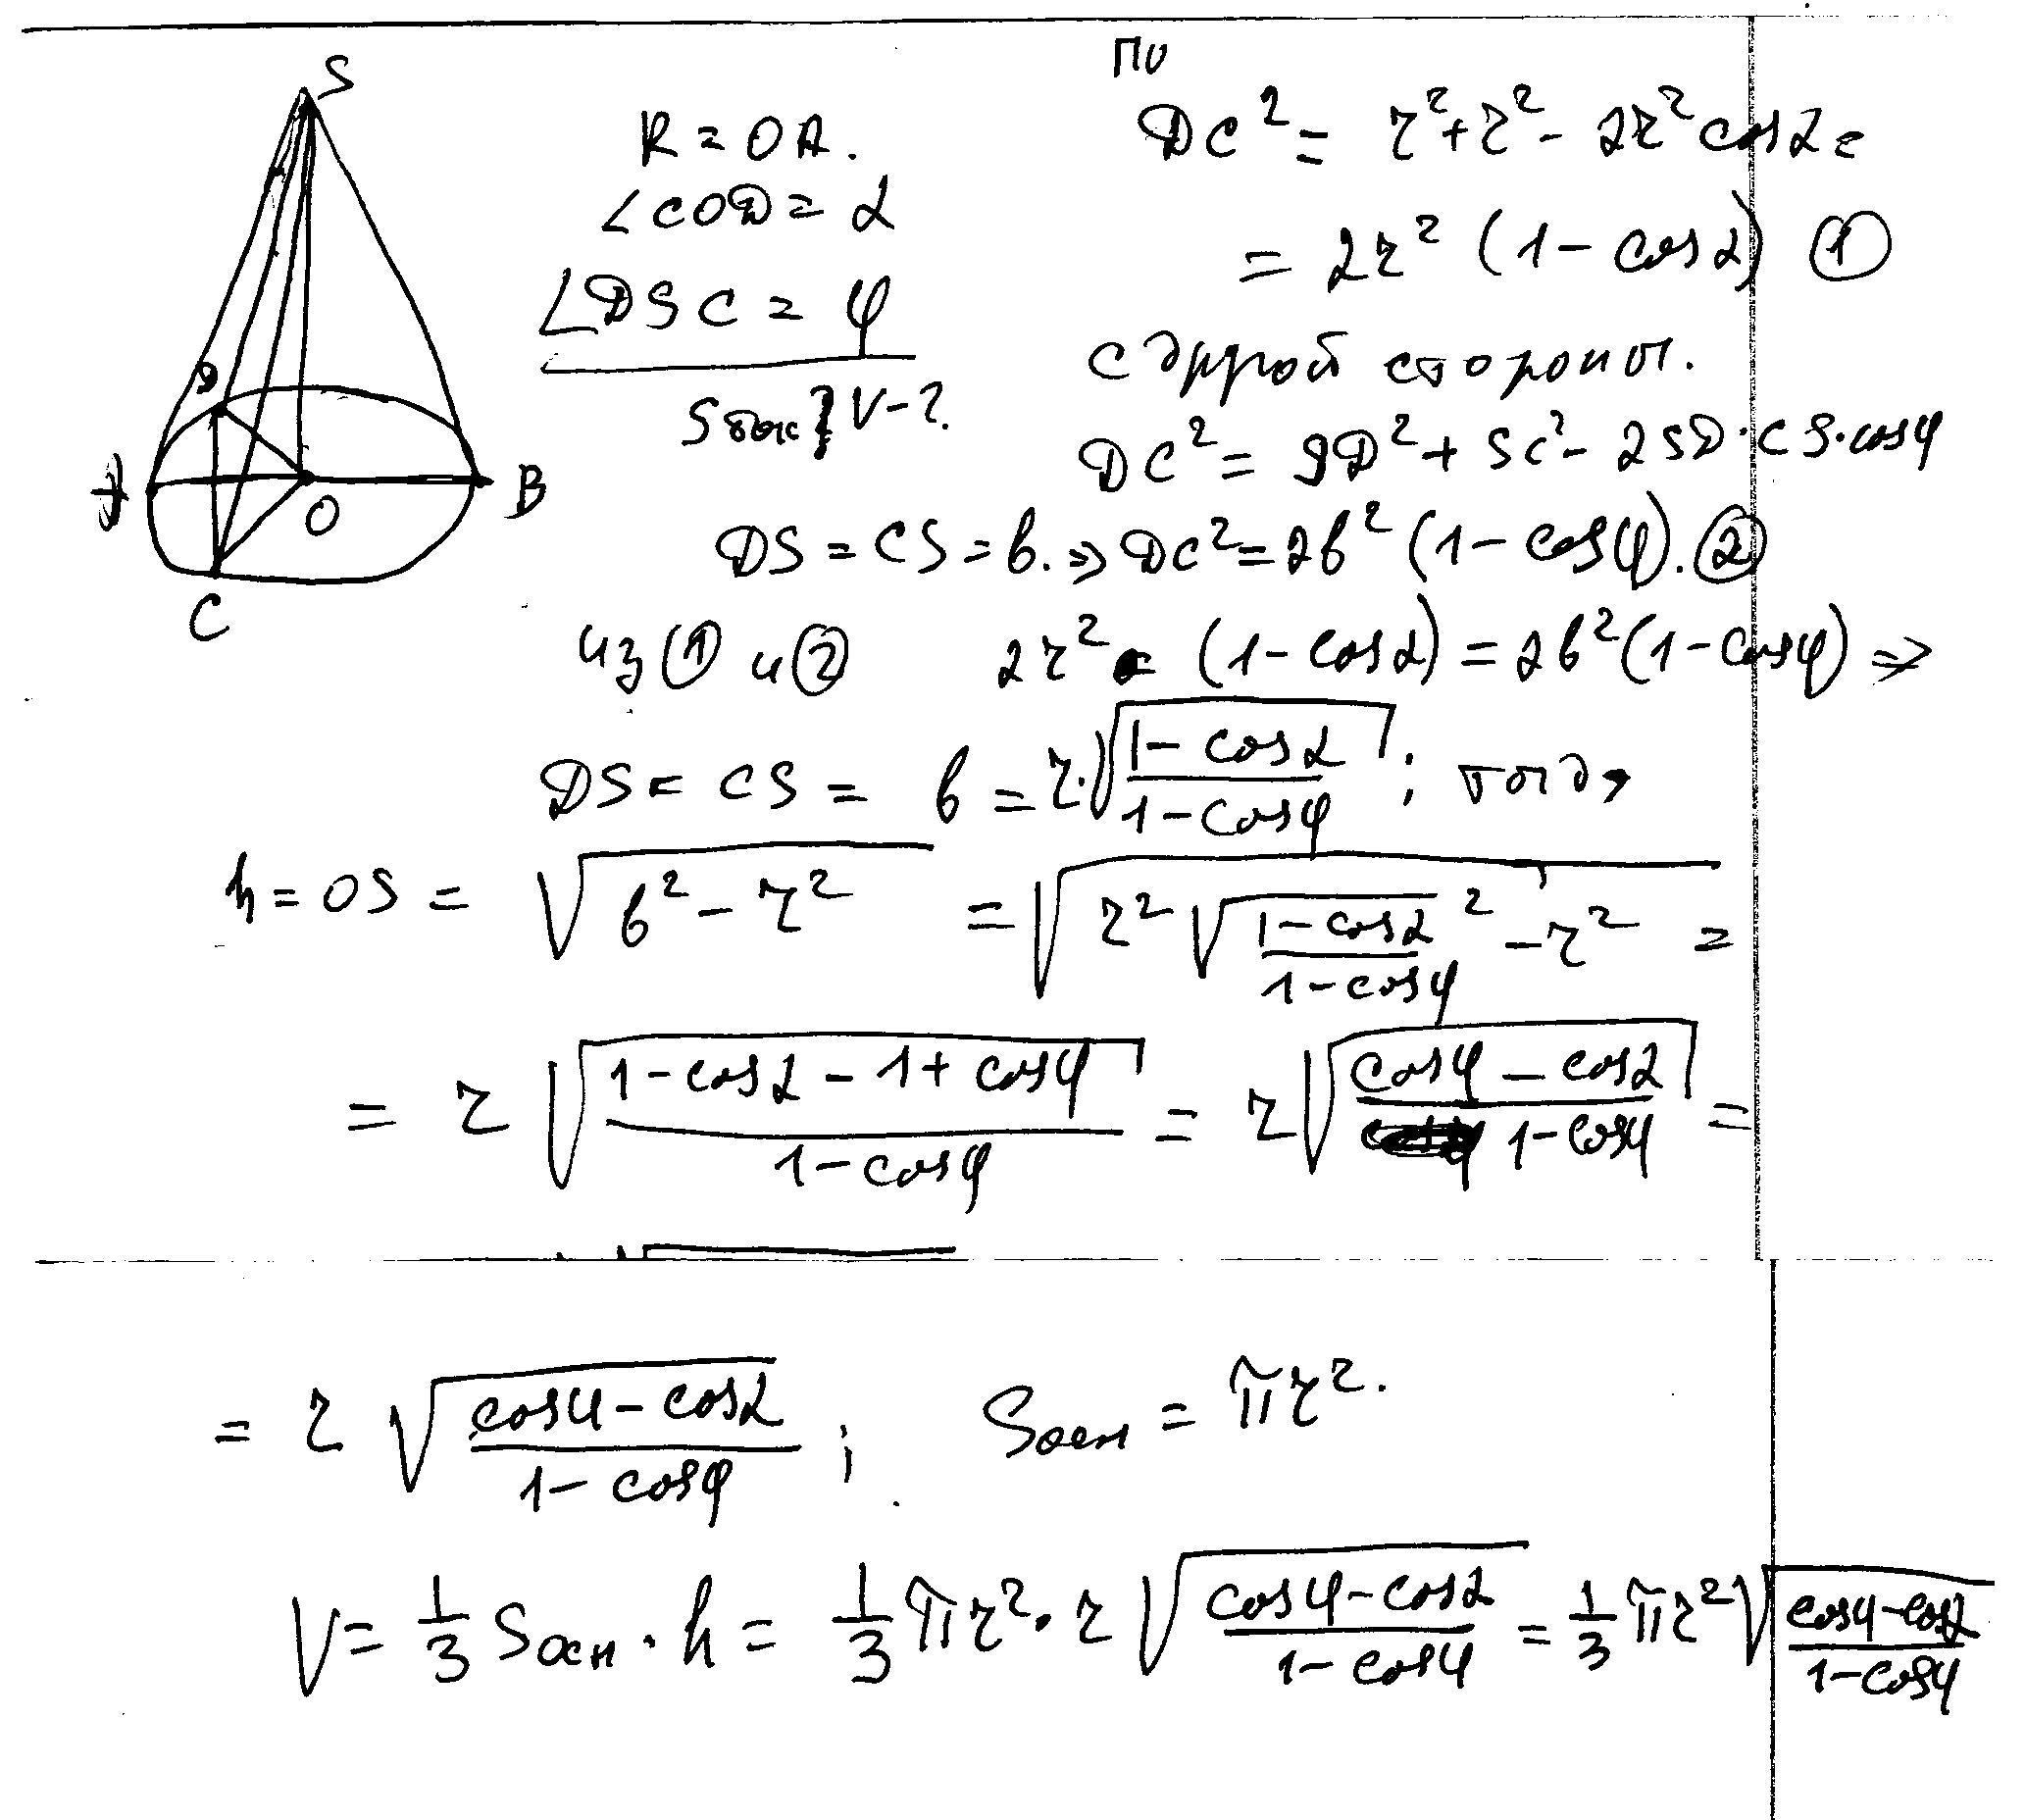 S
R = OA.
∠COD = α
∠DSC = φ
Sбок; V-?
D
A
O
B
C
по
DC² = r² + r² - 2r² cosα =
= 2r² (1 - cosα) ①
с другой стороны.
DC² = SD² + SC² - 2SD·CS·cosφ
DS = CS = b. ⇒ DC² = 2b² (1 - cosφ). ②
из ① и ② 2r² (1 - cosα) = 2b² (1 - cosφ) ⇒
DS = CS = b = r·√((1 - cosα)/(1 - cosφ)); тогда
h = OS = √(b² - r²) = √(r² √((1 - cosα)/(1 - cosφ))² - r²) =
= r √((1 - cosα - 1 + cosφ)/(1 - cosφ)) = r √((cosφ - cosα)/(1 - cosφ)) =
= r √((cosφ - cosα)/(1 - cosφ)); Sосн = πr².
V = 1/3 Sосн · h = 1/3 πr² · r √((cosφ - cosα)/(1 - cosφ)) = 1/3 πr² √((cosφ - cosα)/(1 - cosφ))